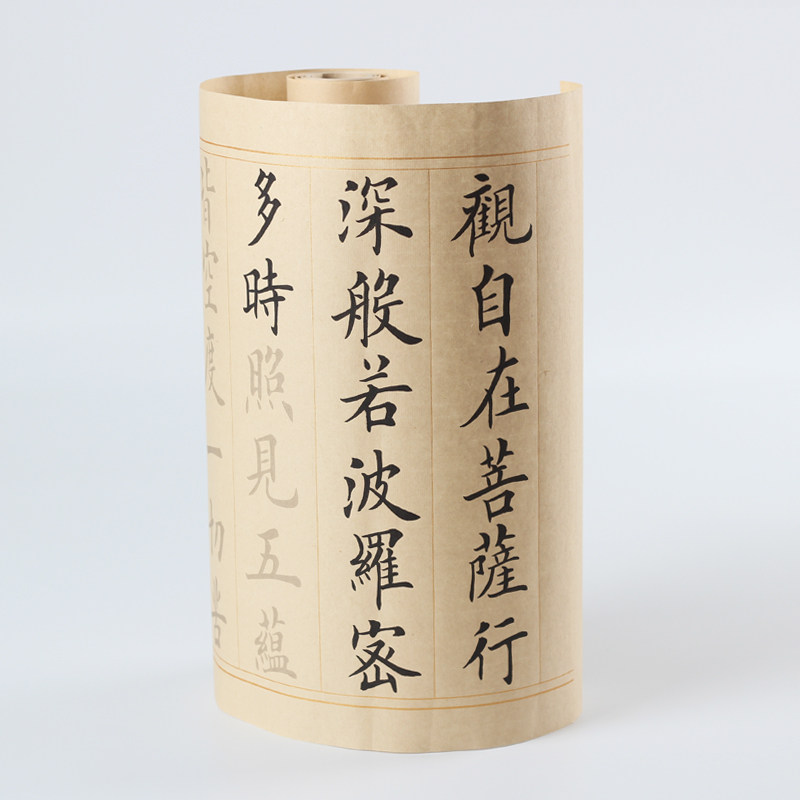 觀自在菩薩行
深般若波羅密
多時照見五蘊
皆空度一切苦